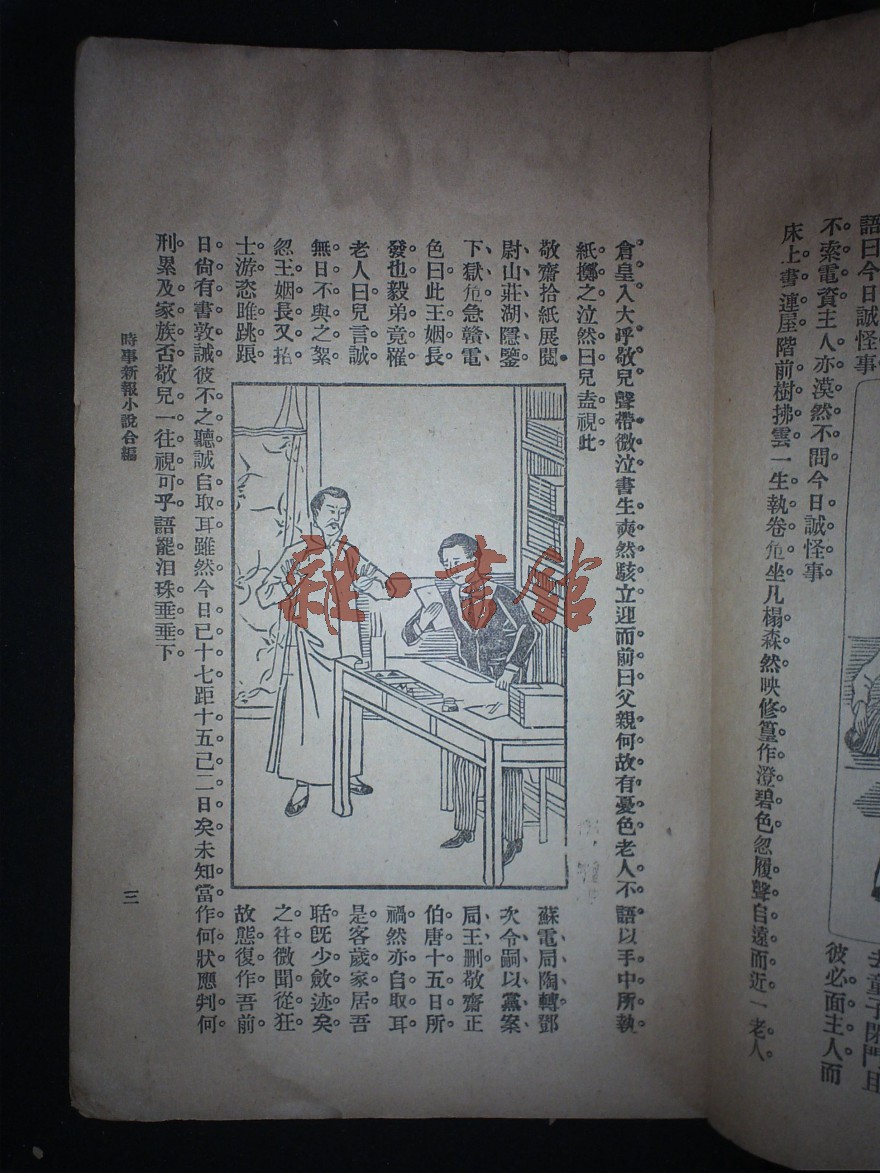 語曰今日誠怪事
去童子閉門且
不索電資主人亦漠然不問今日誠怪事
彼必面主人而
床上書連屋階前樹拂雲一生執卷危坐几榻森然映修篁作澄碧色忽履聲自遠而近一老人
倉皇入大呼敬兒聲帶微泣書生奭然駭立迎而前曰父親何故有憂色老人不語以手中所執
紙擲之泣然曰兒盍視此
敬齋拾紙展閱
蘇電局陶轉鄧
尉山莊湖隱鑒
次令嗣以黨案
下獄危急贛電
局王刪敬齋正
色曰此王姻長
伯唐十五日所
發也毅弟竟罹
禍然亦自取耳
老人曰兒言誠
是客歲家居吾
無日不與之絮
聒旣少斂迹矣
忽王姻長又招
之往微聞從狂
士游恣睢跳踉
故態復作吾前
日尙有書敦誡彼不之聽誠自取耳雖然今日已十七距十五已二日矣未知當作何狀應判何
刑累及家族否敬兒一往視可乎語罷泪珠垂垂下
時事新報小說合編
三
雜·書館